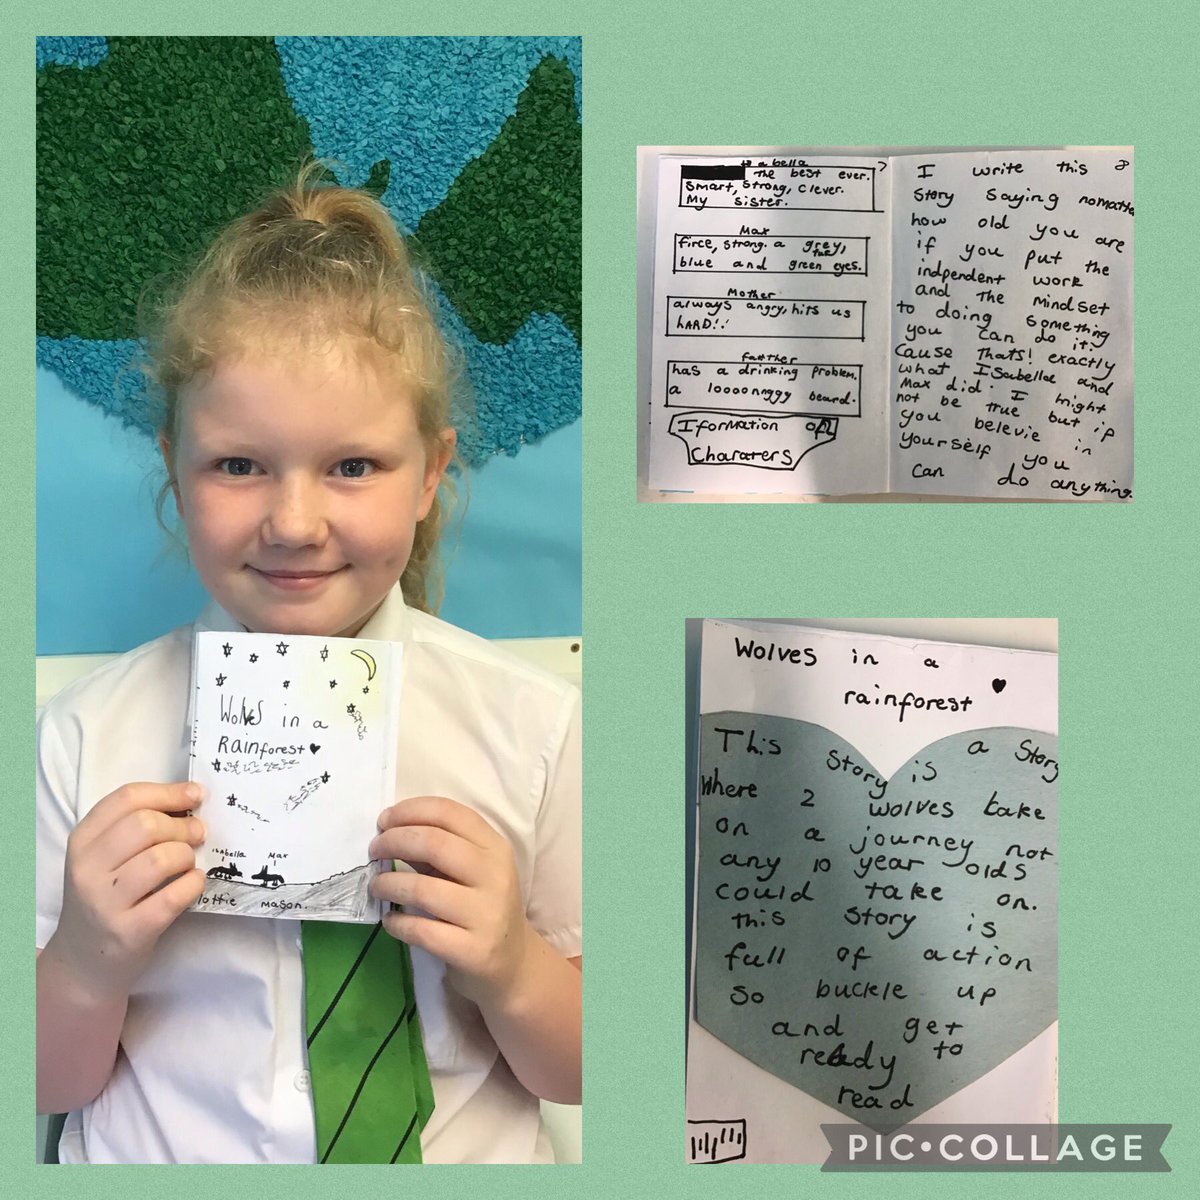 Wolves in a
Rainforest
isabella
Max
lottie mason.
isabella
7
the best ever.
Smart, Strong, Clever.
My sister.
Max
firce, strong. a grey, fur
blue and green eyes.
Mother
always angry, hits us
hARD!!
fatther
has a drinking problem.
a loooonnggy beard.
Iformation of
Chararers
8
I write this
Story saying nomatter
how old you are
if you put the
indpendent work
and the mindset
to doing something
you can do it.
Cause thats! exactly
what ISabella and
Max did. I might
not be true but if
you belevie in
yourself you
can do anything.
Wolves in a
rainforest
This story is a Story
Where 2 wolves take
on a journey not
any 10 year olds
could take on.
this story is
full of action
So buckle up
and get
ready to
read
PIC•COLLAGE